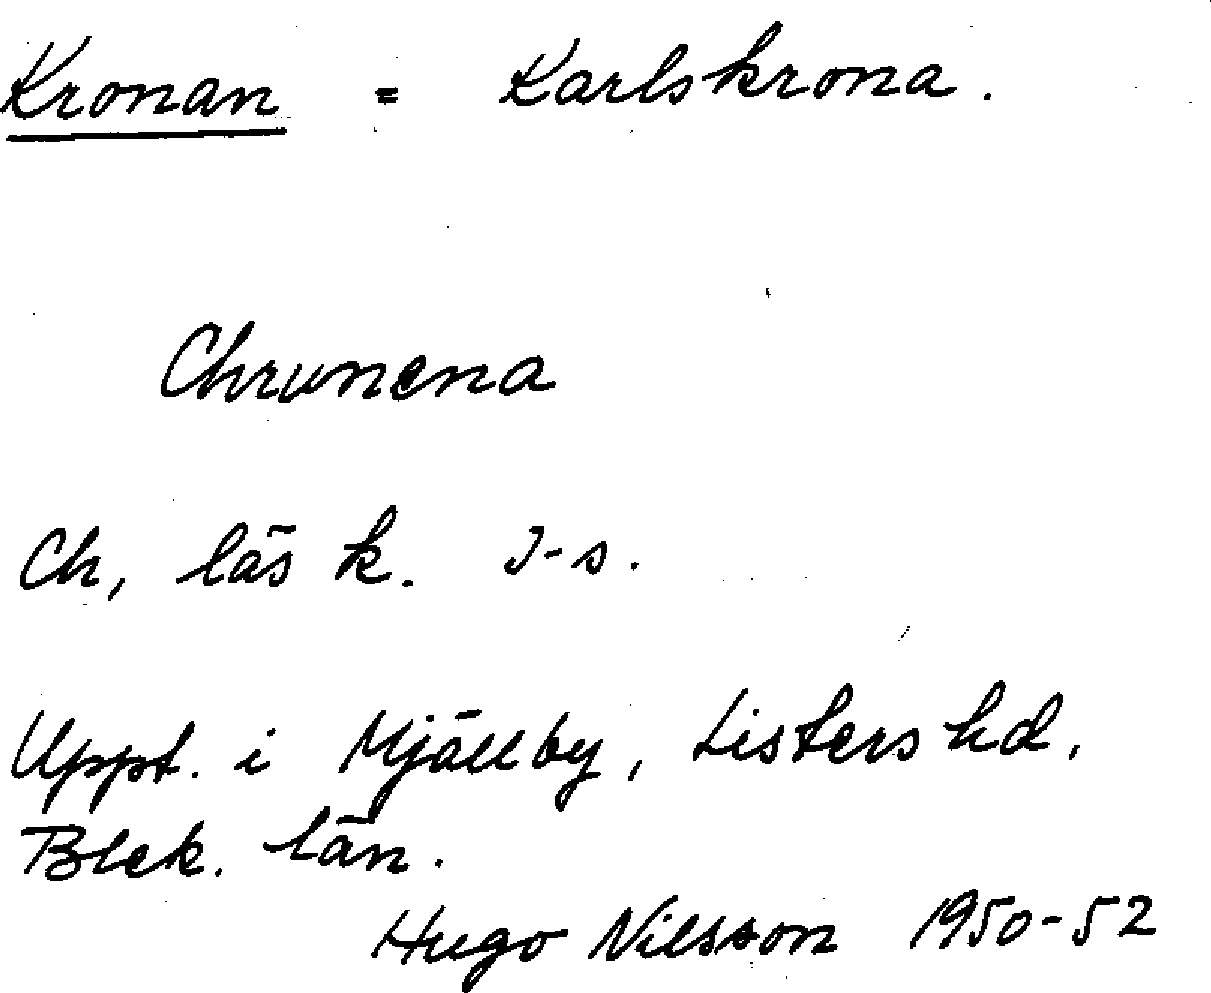 Kronan = Karlskrona.
Chrunena
Ch, läs k. I-s.
Uppt. i Mjällby, Listers hd,
Blek. län.
Hugo Nilsson 1950-52